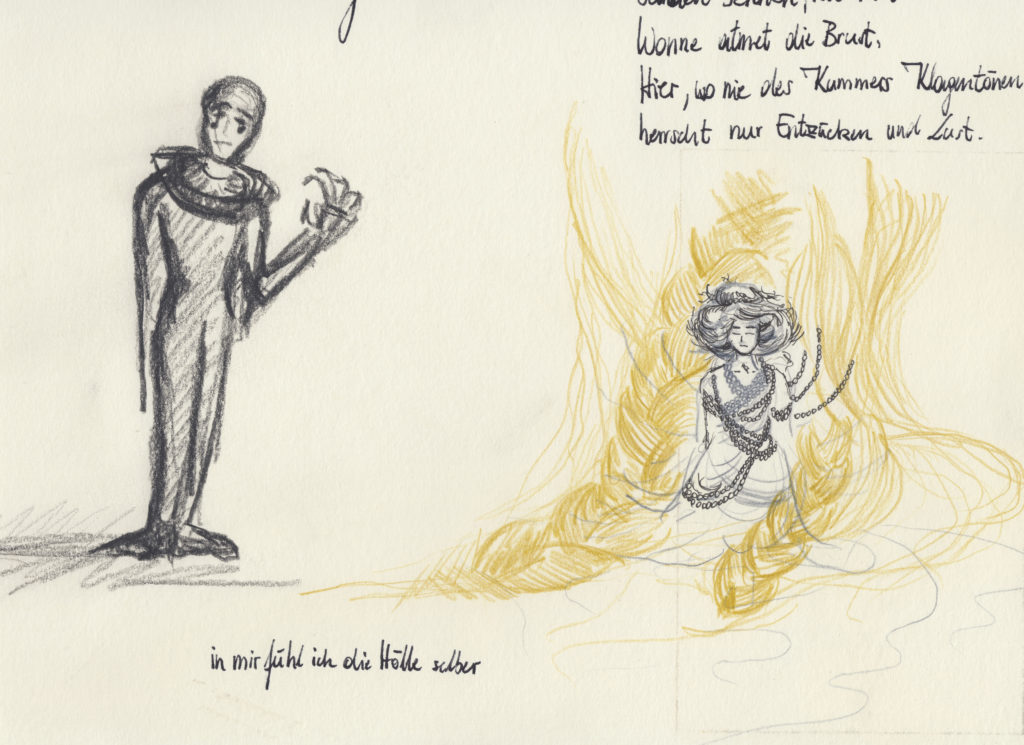 Wonne atmet die Brust.
Hier, wo nie des Kummers Klagentönen
herrscht nur Entzücken und Lust.
in mir fühl ich die Hölle selber